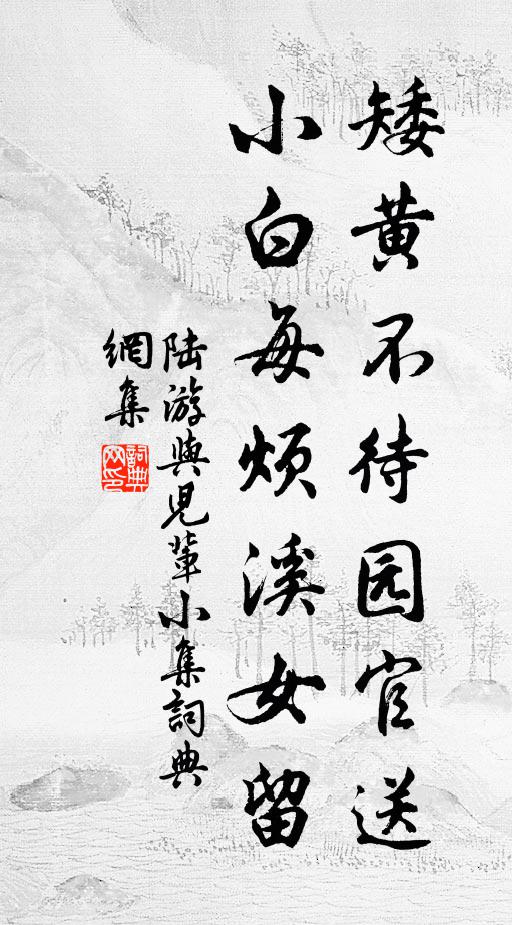 矮黄不待园官送
小白每烦溪女留
陆游與児輩小集詞典
網集
詞典
网印